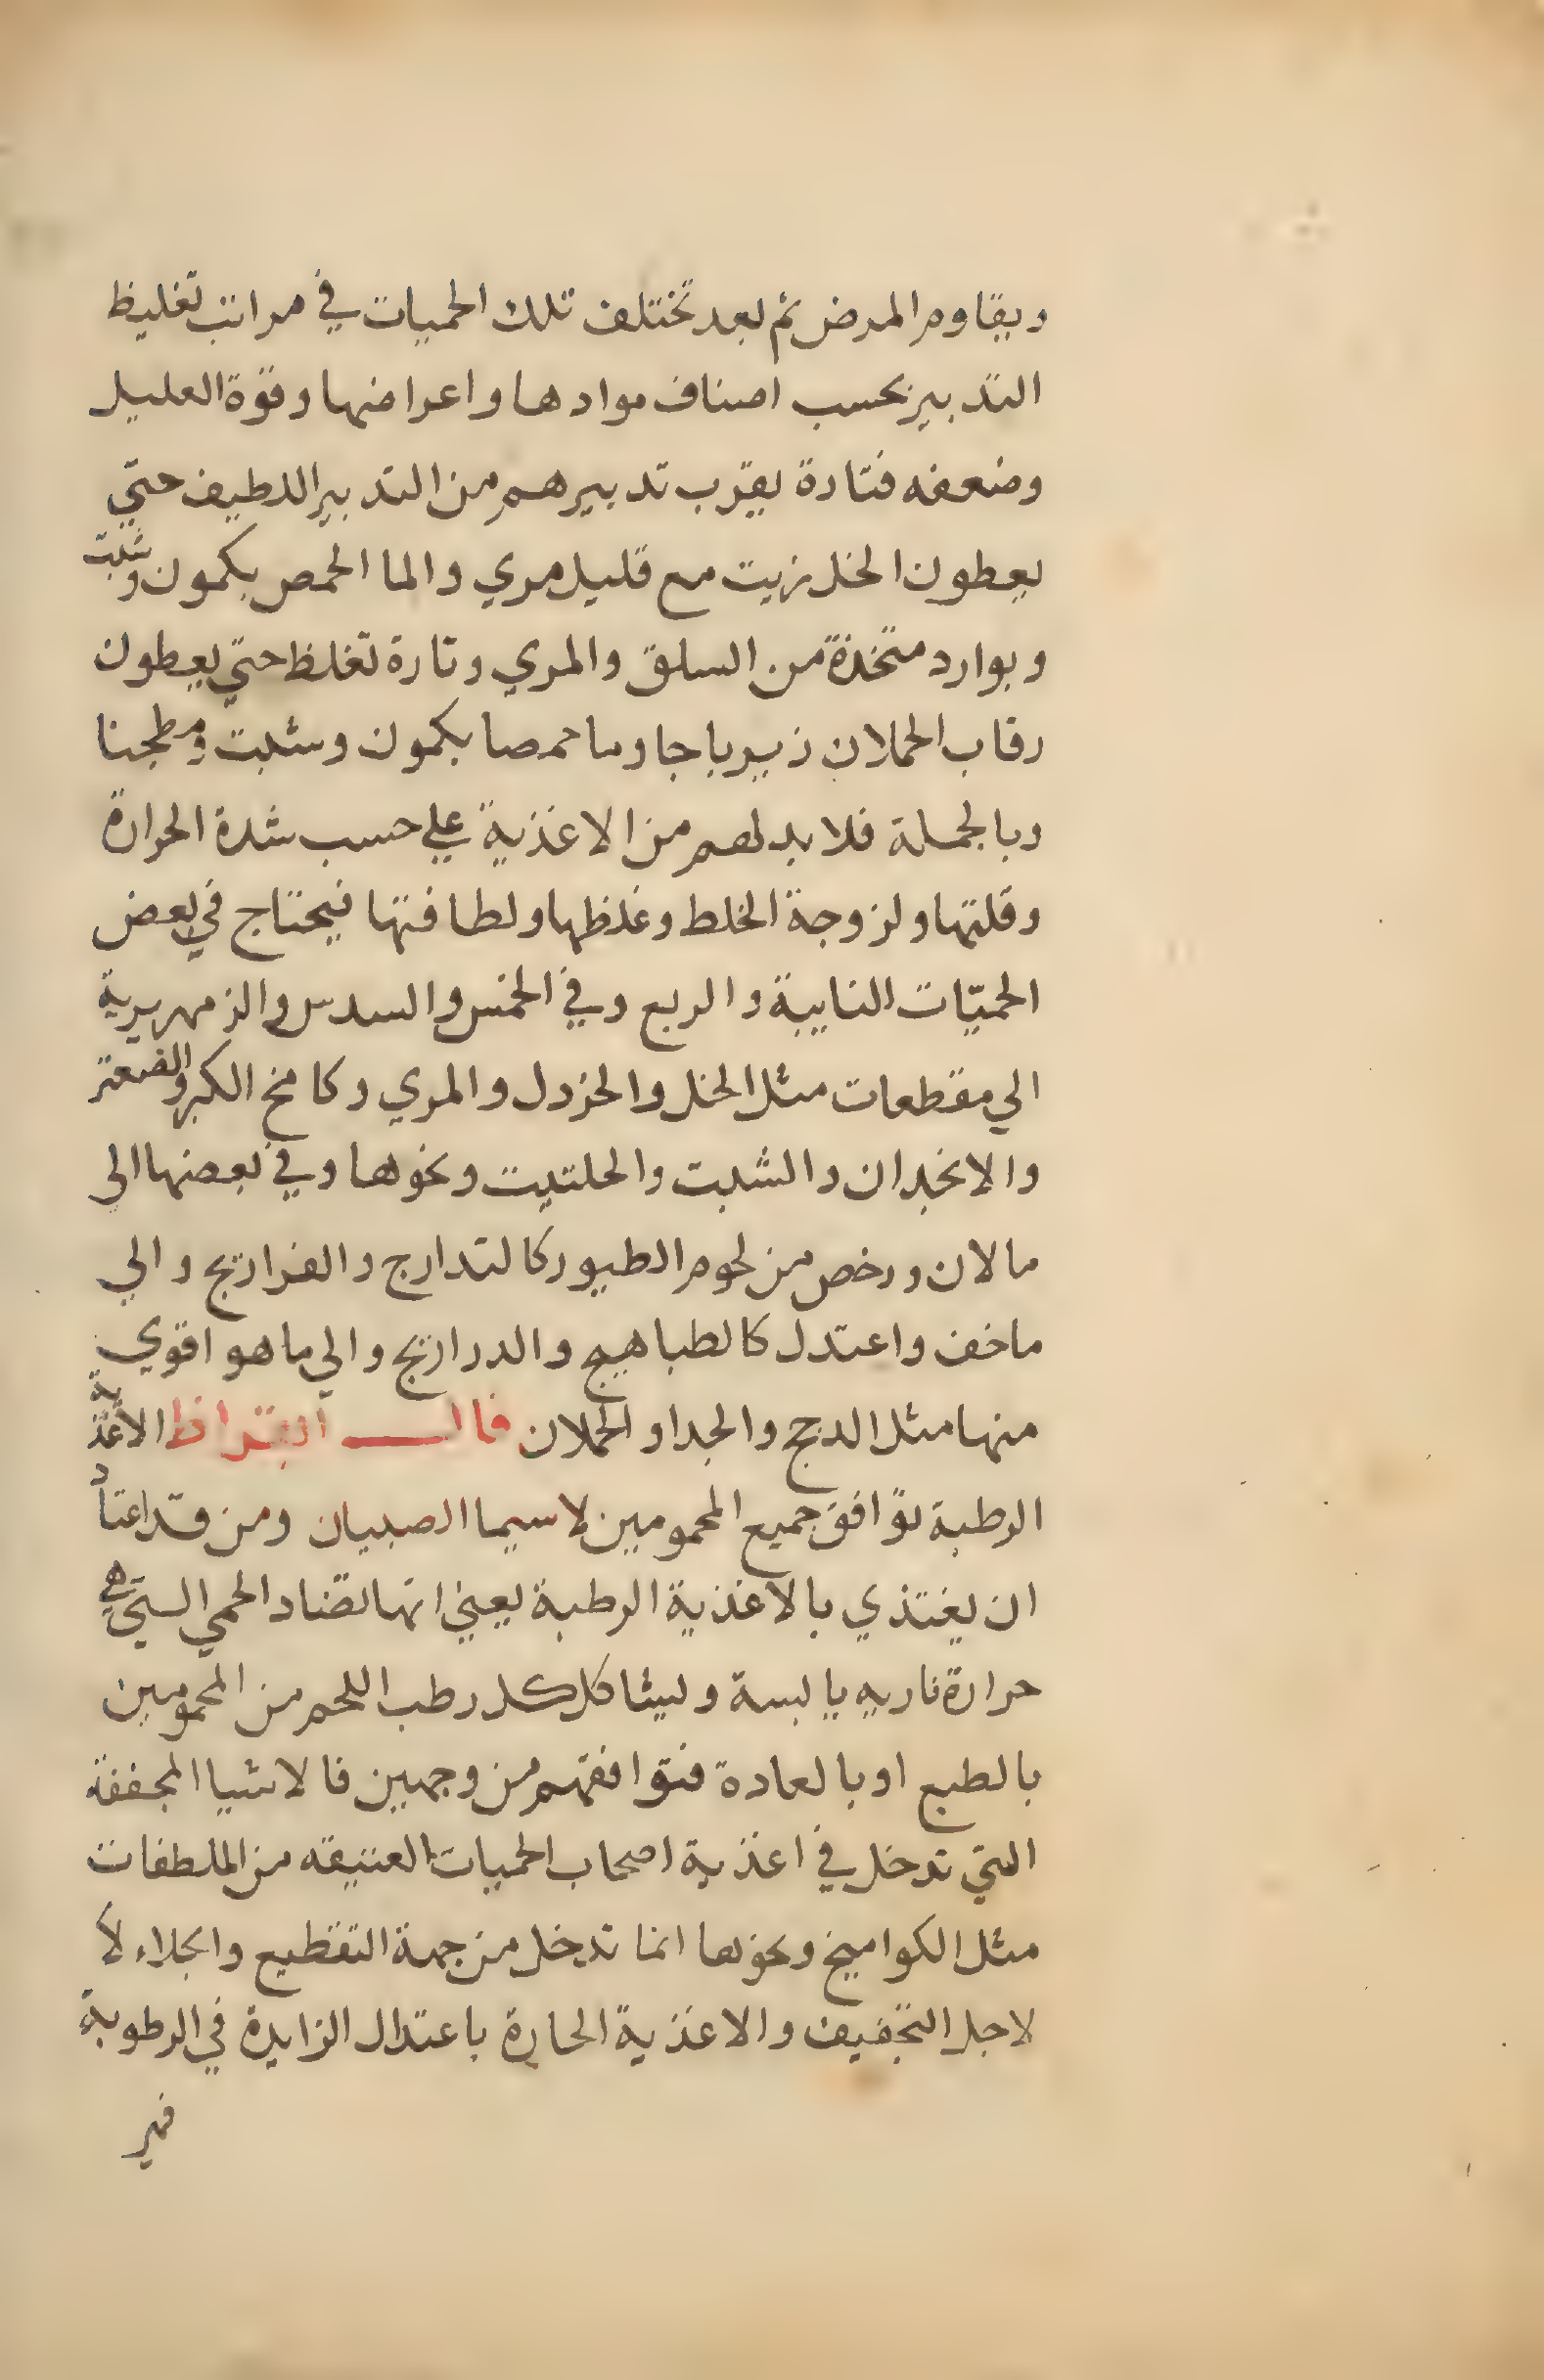 ويقاوم المرض ثم بعد تختلف تلك الحميات في مراتب تغليظ
التدبير بحسب اصناف موادها واعراضها وقوة العليل
وضعفه فتارة يقرب تدبيرهم من التدبير اللطيف حتي
يعطون الخل زيت مع قليل مري والما الحمص بكمون وشبت
وبوارد متخذة من السلق والمري وتارة تغلظ حتي يعطون
رقاب الحملان زيرباجا وما حمصا بكمون وشبت ومطجنا
وبالجملة فلا بد لهم من الاغذية علي حسب شدة الحرارة
وقلتها ولزوجة الخلط وغلظها ولطافتها فيحتاج في بعض
الحميّات النايبة والربع وفي الخمس والسدس والزمهريرية
الي مقطعات مثل الخل والخردل والمري وكامخ الكبر والصعتر
والانجدان والشبت والحلتيت ونحوها وفي بعضها الي
ما لان ورخص من لحوم الطيور كالتدارج والفراريج والي
ما خف واعتدل كالطباهيج والدراريج والي ما هو اقوي
منها مثل الدجج والجدا والحملان قال ابقراط الاغذية
الرطبة توافق جميع المحمومين لا سيما الصبيان ومن قد اعتاد
ان يغتذي بالاغذية الرطبة يعني انها تضاد الحمي التي هي
حرارة ناريه يابسة ويشاكل كل رطب اللحم من المحمومين
بالطبع او بالعادة فتوافقهم من وجهين فالاشيا المجففة
التي تدخل في اغذية اصحاب الحميات العتيقه من الملطفات
مثل الكواميخ ونحوها انما تدخل من جهة التقطيع والجلاء لا
لاجل التجفيف والاغذية الحارة باعتدال الزايدة في الرطوبة